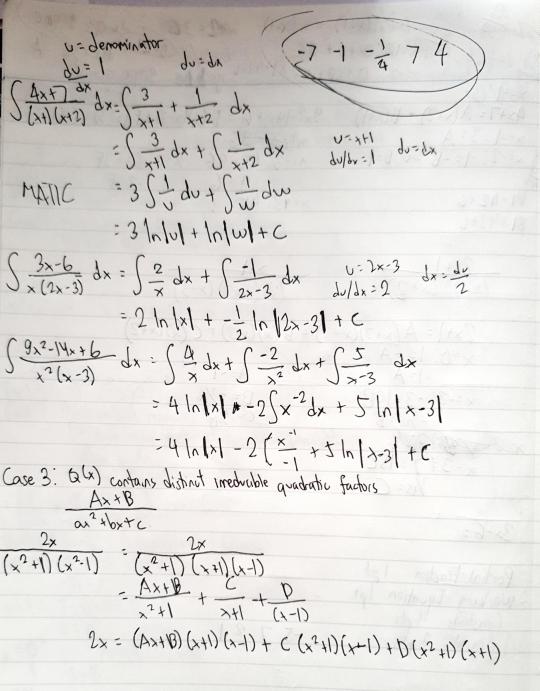 u = denominator
du/dx = 1    du = dx
-7  -1  -1/4  7  4
∫ (4x+7)/((x+1)(x+2)) dx = ∫ 3/(x+1) + 1/(x+2) dx
= ∫ 3/(x+1) dx + ∫ 1/(x+2) dx    u = x+1
du/dx = 1    du = dx
MATIC    = 3 ∫ 1/u du + ∫ 1/w dw
= 3 ln|u| + ln|w| + C
∫ (3x-6)/(x(2x-3)) dx = ∫ 2/x dx + ∫ -1/(2x-3) dx    u = 2x-3    dx = du/2
du/dx = 2
= 2 ln|x| + -1/2 ln|2x-3| + C
∫ (9x²-14x+6)/(x²(x-3)) dx = ∫ 4/x dx + ∫ -2/x² dx + ∫ 5/(x-3) dx
= 4 ln|x| - 2∫x⁻² dx + 5 ln|x-3|
= 4 ln|x| - 2(x⁻¹/-1 + 5 ln|x-3| + C
Case 3: Q(x) contains distinct irreducible quadratic factors
(Ax+B)/(ax²+bx+c)
2x/((x²+1)(x²-1)) = 2x/((x²+1)(x+1)(x-1))
= (Ax+B)/(x²+1) + C/(x+1) + D/(x-1)
2x = (Ax+B)(x+1)(x-1) + C(x²+1)(x-1) + D(x²+1)(x+1)